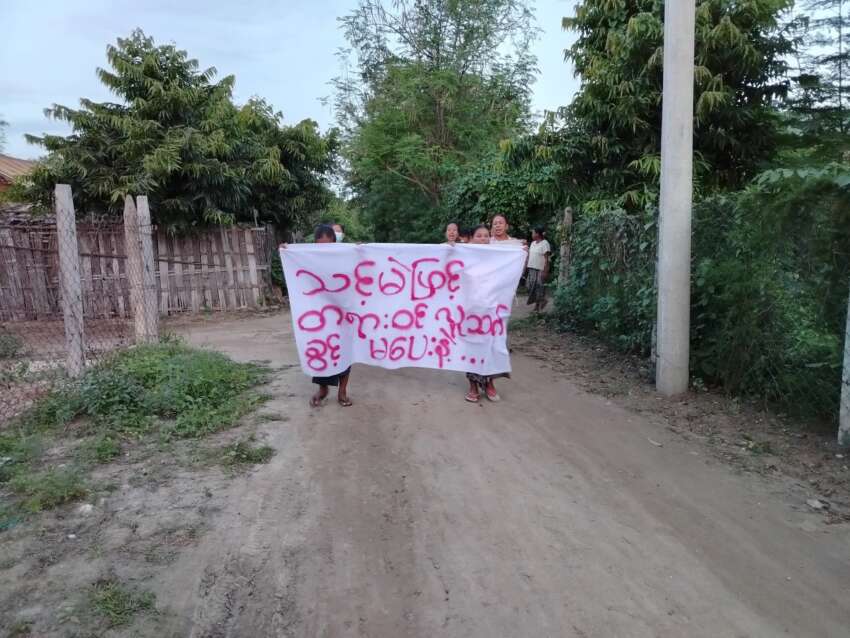 သင့်မဲဖြင့်
တရားဝင် လူသတ်
ခွင့် မပေးနဲ့...